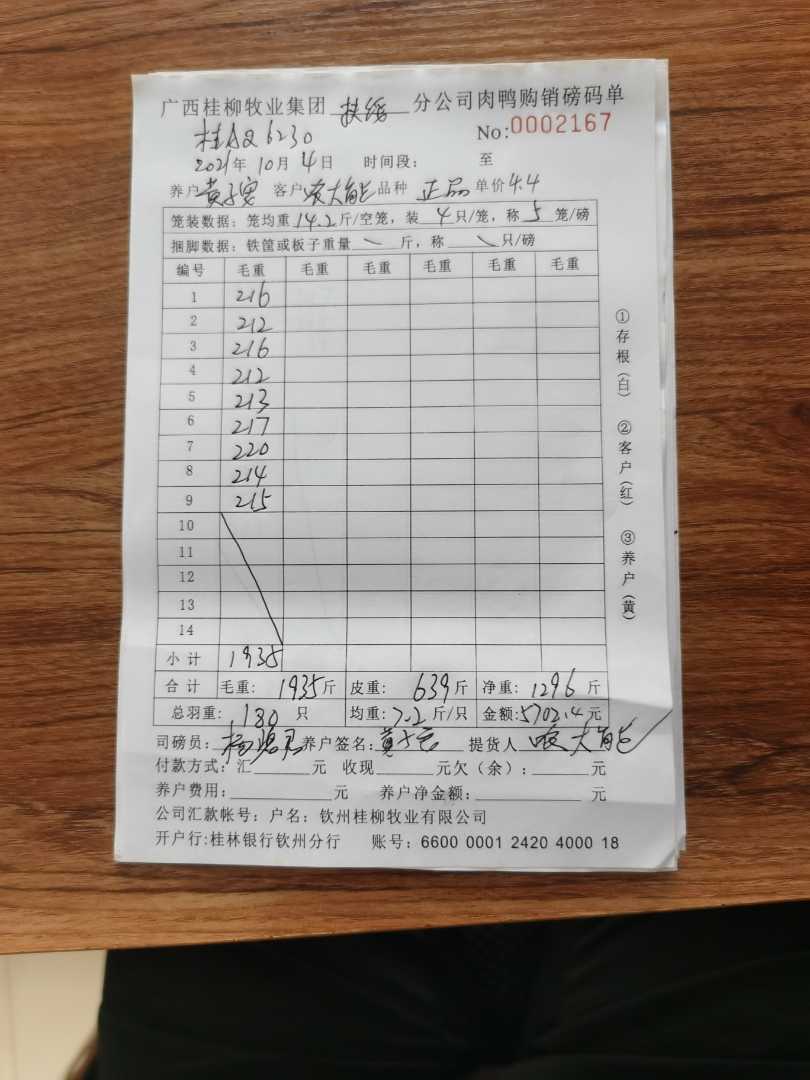 广西桂柳牧业集团 扶绥 分公司肉鸭购销磅码单
6230 No:0002167
2021年10月4日 时间段: 至
养户 客户 农大能 品种 正品 单价4.4
笼装数据:笼均重14.2斤/空笼,装4只/笼,称5笼/磅
捆脚数据:铁筐或板子重量 \ 斤,称 \ 只/磅
编号 毛重 毛重 毛重 毛重 毛重 毛重
1 216
2 212
3 216
4 212
5 213
6 217
7 220
8 214
9 215
10
11
12
13
14
小计 1935
合计 毛重:1935斤 皮重:639斤 净重:1296斤
总羽重:180只 均重:7.2斤/只 金额:5702.4元
司磅员: 养户签名: 提货人 农大能
付款方式:汇______元 收现______元欠(余):______元
养户费用:__________元 养户净金额:__________元
公司汇款帐号:户名:钦州桂柳牧业有限公司
开户行:桂林银行钦州分行 账号:6600 0001 2420 4000 18
①存根(白) ②客户(红) ③养户(黄)